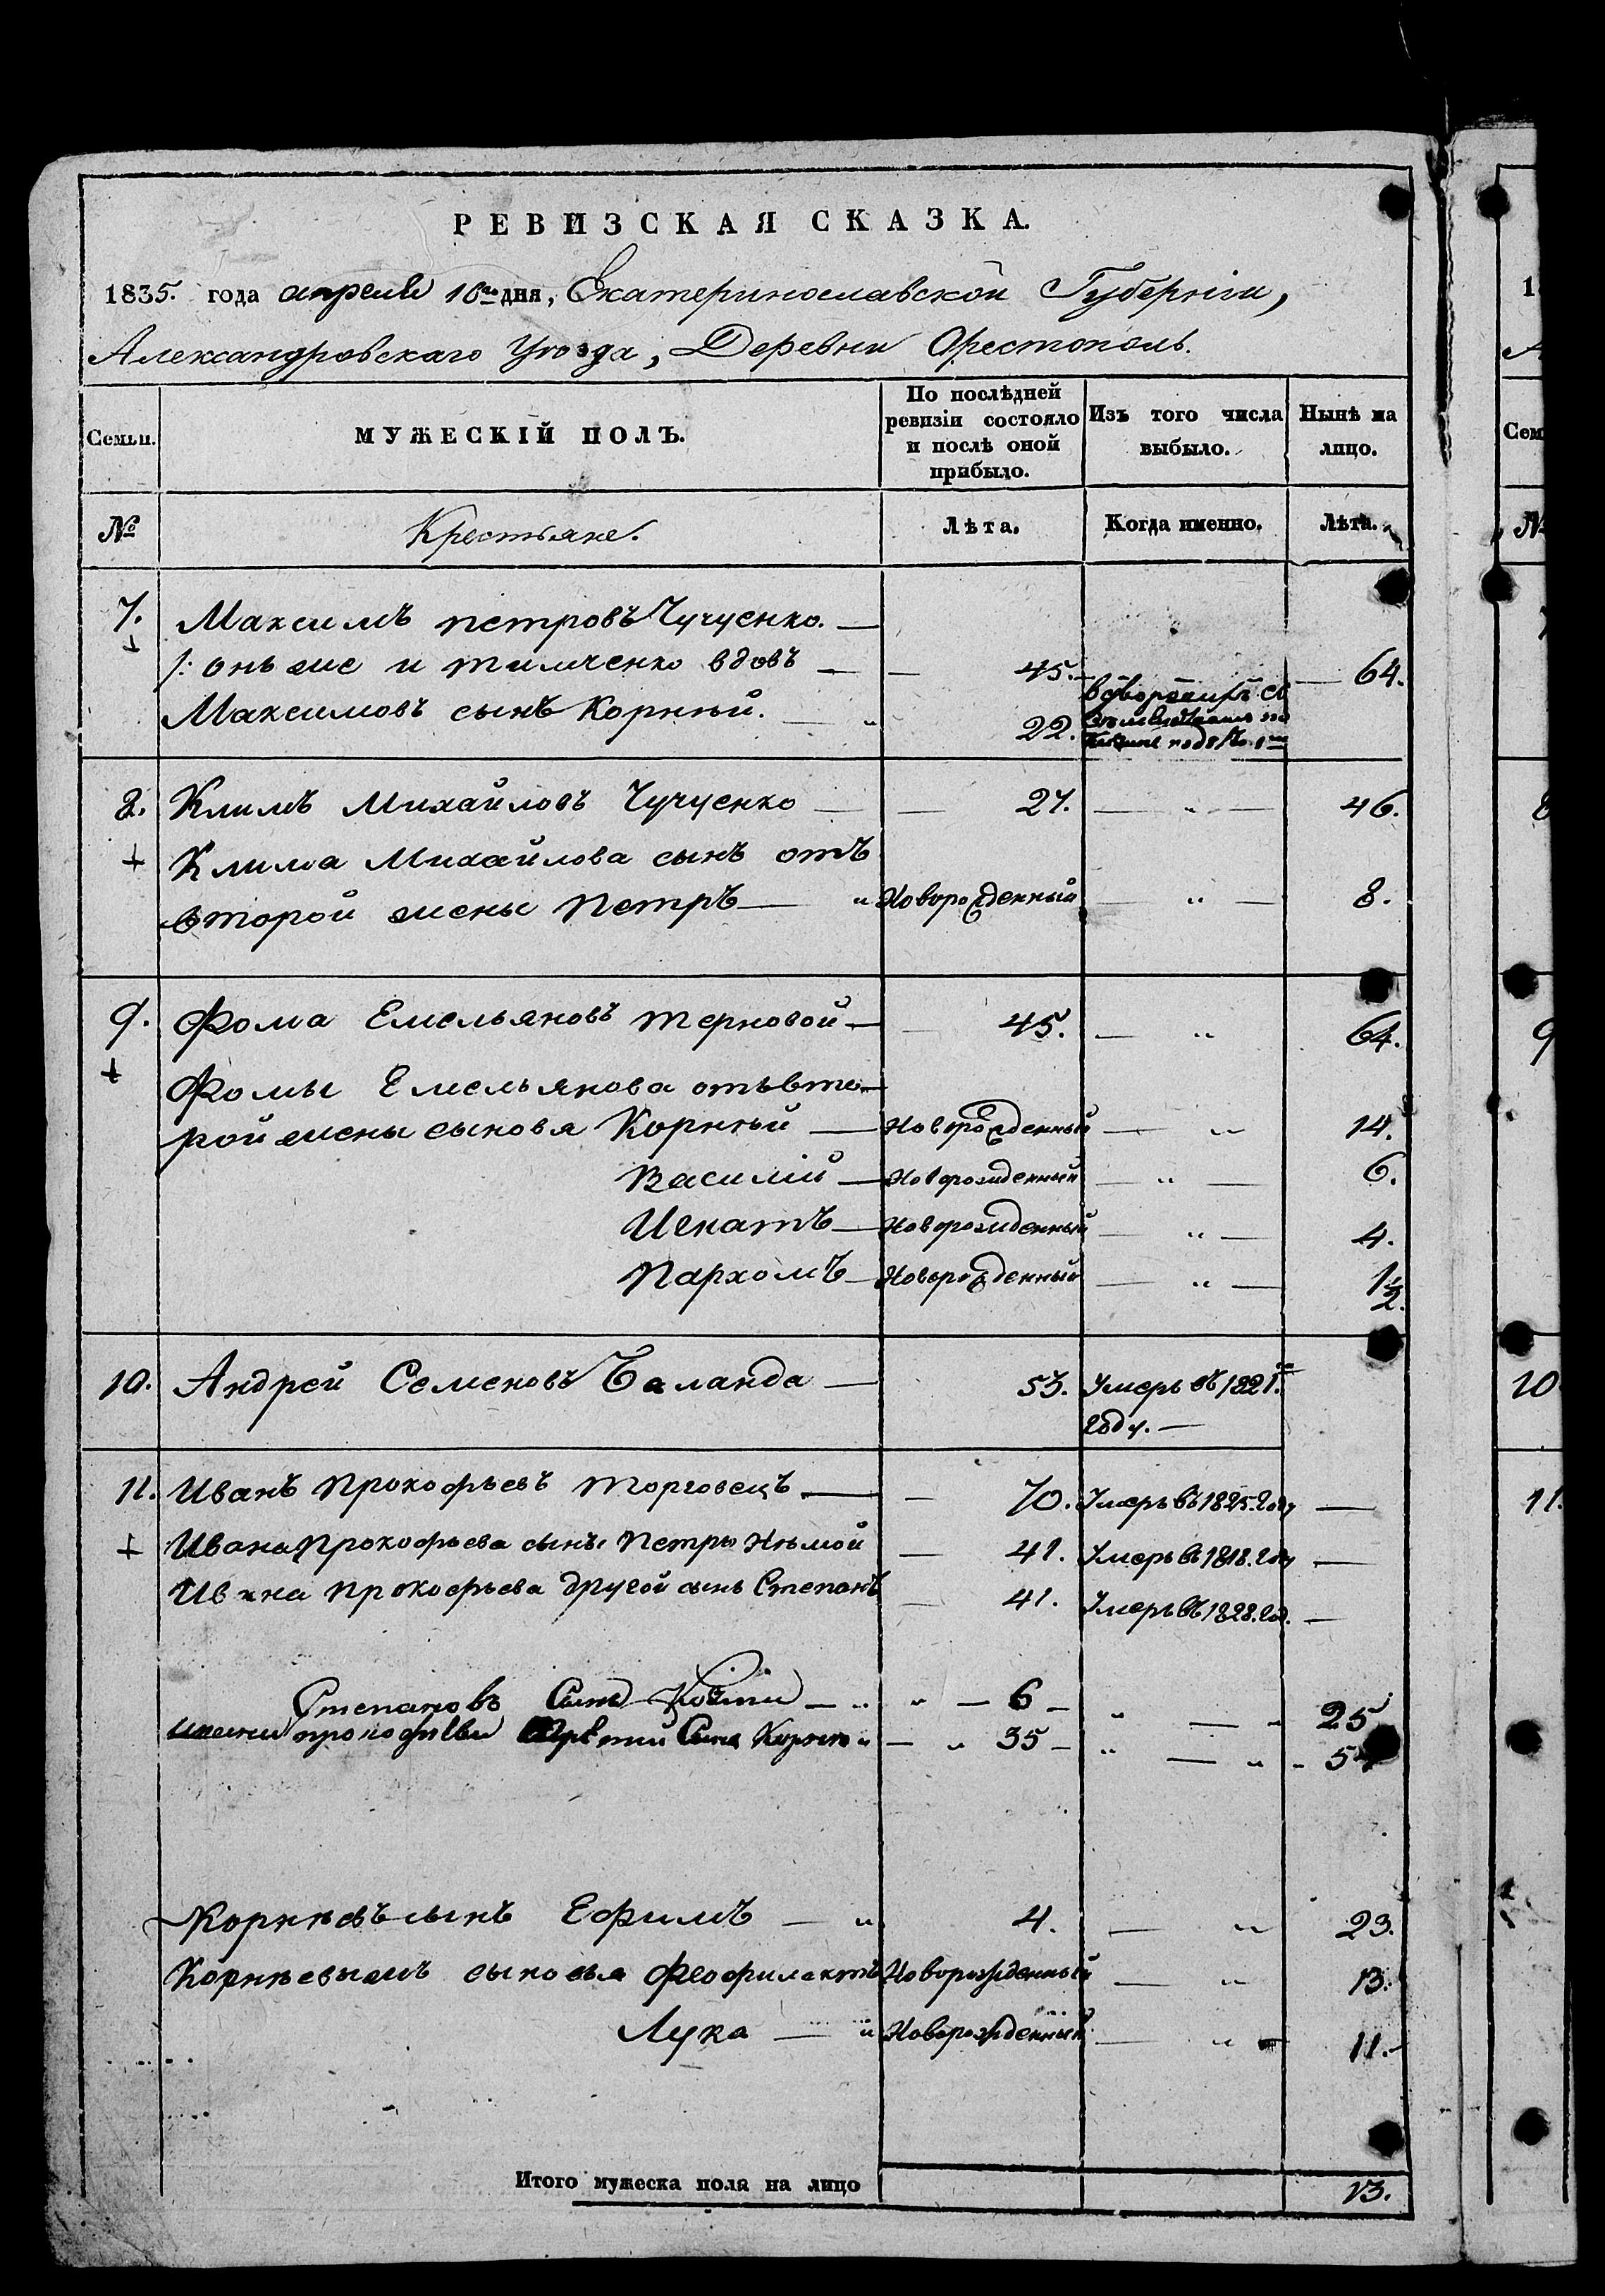 РЕВИЗСКАЯ СКАЗКА.
1835. года апреля 10го дня, Екатеринославской Губерніи,
Александровскаго Уѣзда, Деревни Орестополь.
Семьи. МУЖЕСКІЙ ПОЛЪ. По послѣдней ревизіи состояло и послѣ оной прибыло. Изъ того числа выбыло. Нынѣ на лицо.
№ Крестьяне. Лѣта. Когда именно. Лѣта.
7. Максимъ петровъ Чучуенко. —
/: онъ же и тимченко вдовъ — — 45. — 64.
Максимовъ сынъ Корнѣй. — „ 22.
8. Климъ Михайловъ Чучуенко — — 27. — „ — 46.
Клима Михайлова сынъ отъ
второй жены Петръ — „ Новорожденный — „ — 8.
9. Фома Емельяновъ терновой — — 45. — „ 64.
Фомы Емельянова отъ вто-
рой жены сыновя Корнѣй — Новорожденный — „ 14.
Василій — Новорожденный — „ — 6.
Игнатъ — Новорожденный — „ — 4.
Пархомъ — Новорожденный — „ — 1½.
10. Андрей Семеновъ Баланда — 53. Умеръ въ 1821.м
году. —
11. Иванъ Прокофьевъ торговецъ — — 70. Умеръ въ 1825. году —
Ивана Прокофьева сынъ Петръ Нѣмой — 41. Умеръ въ 1818. году —
Ивана Прокофьева другой сынъ Степанъ — 41. Умеръ въ 1828. год. —
Степановъ Сынъ — „ „ — 6 — „ — „ 25
прокофьева Сынъ Корнѣй — „ 35 — „ — „ „ 54
Корнѣевъ сынъ Ефимъ — „ 4. — „ 23.
Корнѣевыжъ сыновья Феофилактъ Новорожденный — „ 13.
Лука — „ Новорожденный — „ 11.
Итого мужеска поля на лицо 13.
1
А
Сем
№
7
8
9
10
11.